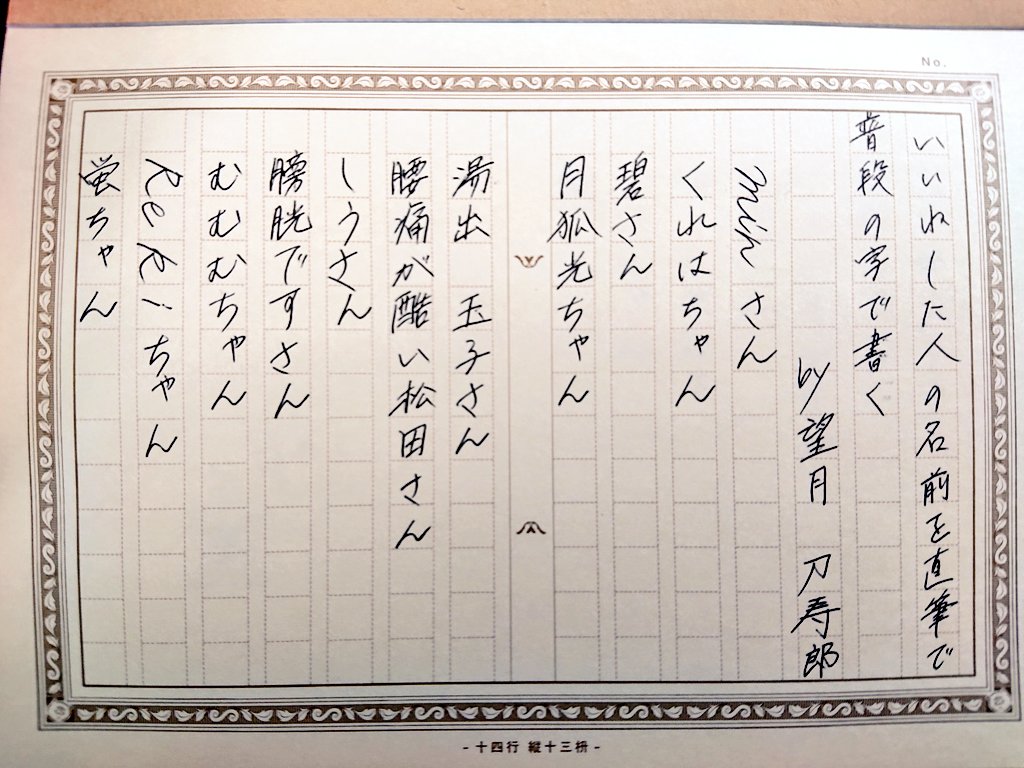 No.
いいねした人の名前を直筆で
普段の字で書く
by望月 刀寿郎
mihさん
くれはちゃん
碧さん
月狐光ちゃん
湯出 玉子さん
腰痛が酷い松田さん
しうさん
膀胱ですさん
むむむちゃん
ReRiちゃん
蛍ちゃん
- 十四行 縦十三枡 -